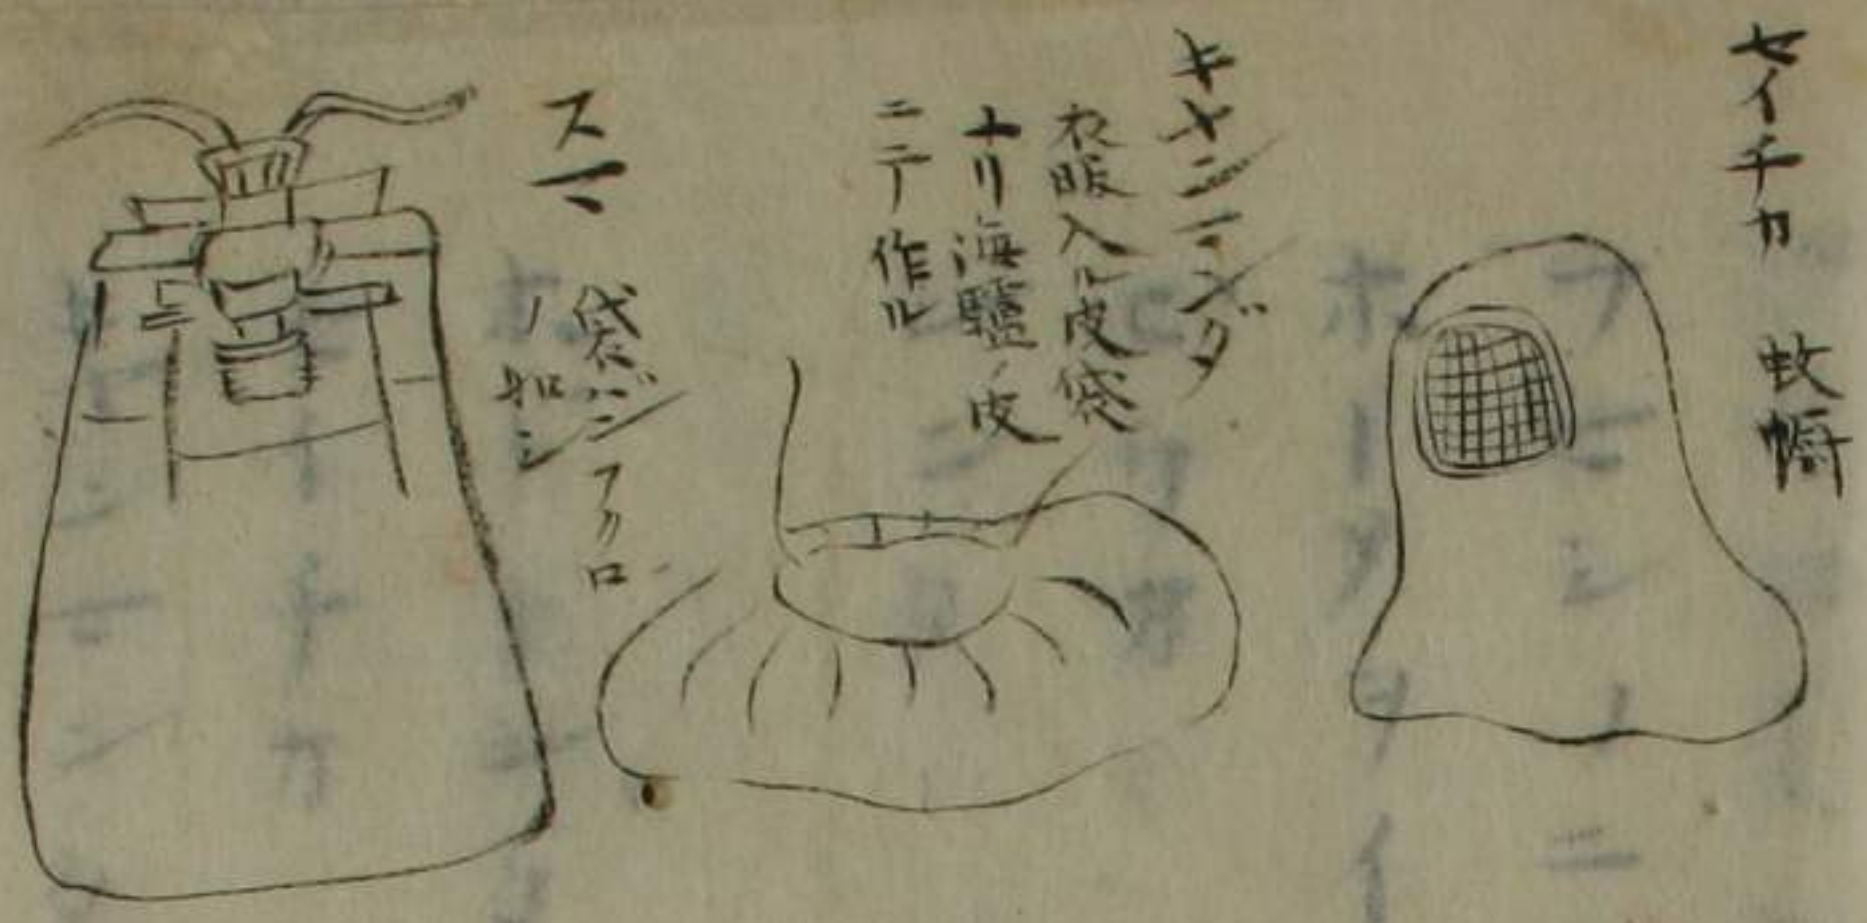 セイチカ 蚊幮
キヤンマング
衣服入ル皮袋
ナリ海驢ノ皮
ニテ作ル
スマ
袋
フクロ
ノ如シ